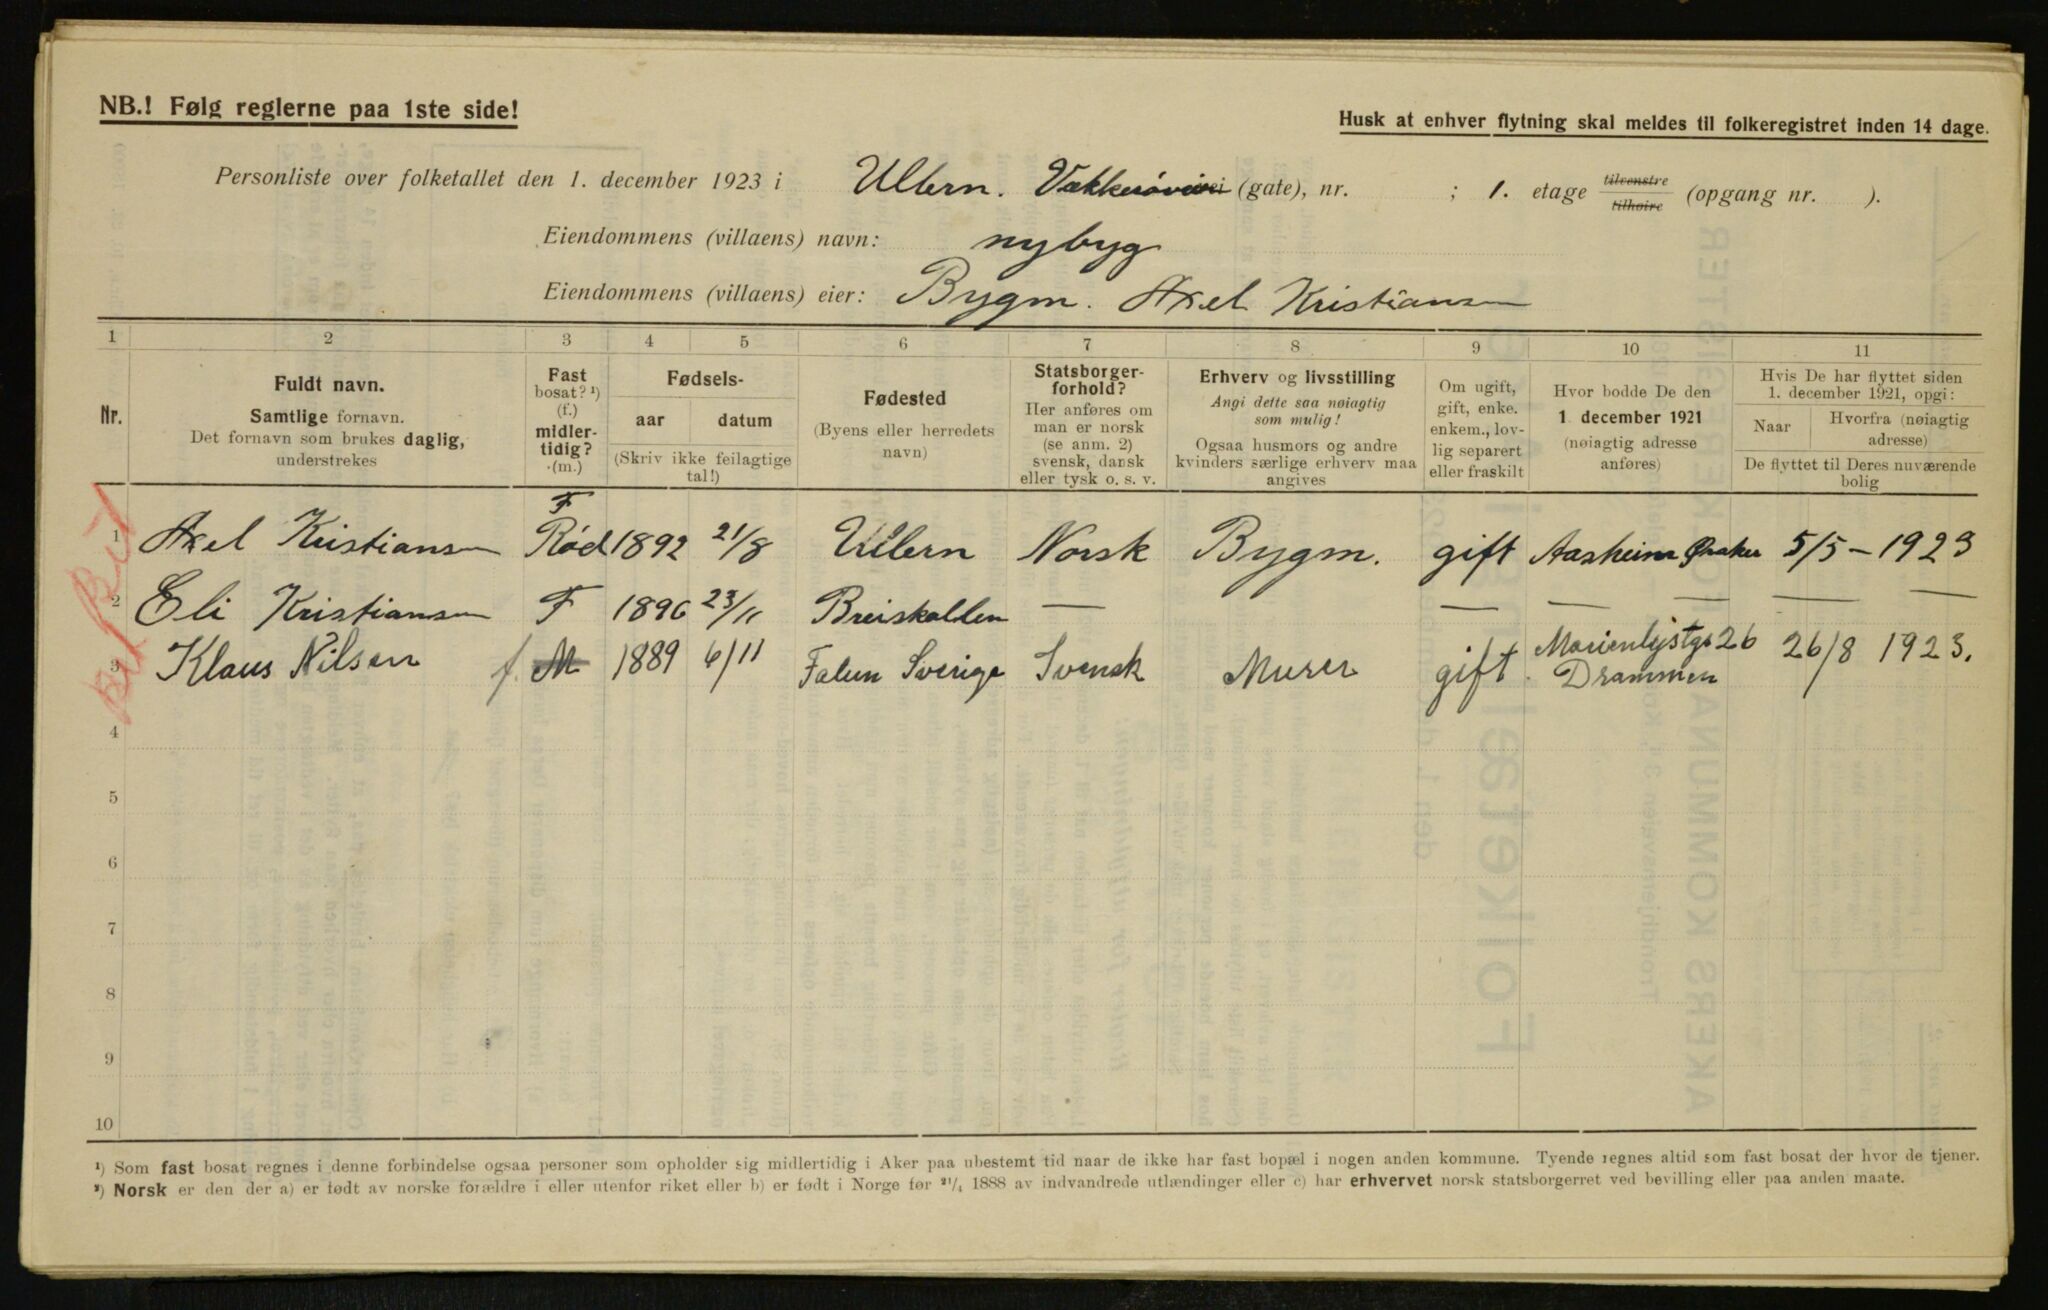 NB.! Følg reglerne paa 1ste side!
Husk at enhver flytning skal meldes til folkeregistret inden 14 dage.
Personliste over folketallet den 1. december 1923 i Ullern. Vækkerøveien (gate), nr. ; 1. etage tilvenstre tilhøire (opgang nr. ).
Eiendommens (villaens) navn: nybyg
Eiendommens (villaens) eier: Bygm. Axel Kristiansen
1 2 3 4 5 6 7 8 9 10 11
Nr.
Fuldt navn.
Samtlige fornavn.
Det fornavn som brukes daglig,
understrekes
Fast
bosat? ¹)
(f.)
midler-
tidig?
(m.)
Fødsels-
aar datum
(Skriv ikke feilagtige
tal!)
Fødested
(Byens eller herredets
navn)
Statsborger-
forhold?
Her anføres om
man er norsk
(se anm. 2)
svensk, dansk
eller tysk o. s. v.
Erhverv og livsstilling
Angi dette saa nøiagtig
som mulig!
Ogsaa husmors og andre
kvinders særlige erhverv maa
angives
Om ugift,
gift, enke.
enkem., lov-
lig separert
eller fraskilt
Hvor bodde De den
1 december 1921
(nøiagtig adresse
anføres)
Hvis De har flyttet siden
1. december 1921, opgi:
Naar Hvorfra (nøiagtig
adresse)
De flyttet til Deres nuværende
bolig
F
1 Axel Kristiansen Rød 1892 21/8 Ullern Norsk Bygm. gift Aasheim Øraker 5/5 – 1923
2 Eli Kristiansen F 1896 23/11 Breiskallen — — — — — —
3 Klaus Nilsen f. M 1889 6/11 Falun Sverige Svensk Murer gift. Marienlystgt 26 26/8 1923.
Drammen
4
5
6
7
8
9
10
¹) Som fast bosat regnes i denne forbindelse ogsaa personer som opholder sig midlertidig i Aker paa ubestemt tid naar de ikke har fast bopæl i nogen anden kommune. Tyende regnes altid som fast bosat der hvor de tjener.
²) Norsk er den der a) er født av norske forældre i eller utenfor riket eller b) er født i Norge før 21/4 1888 av indvandrede utlændinger eller c) har erhvervet norsk statsborgerret ved bevilling eller paa anden maate.